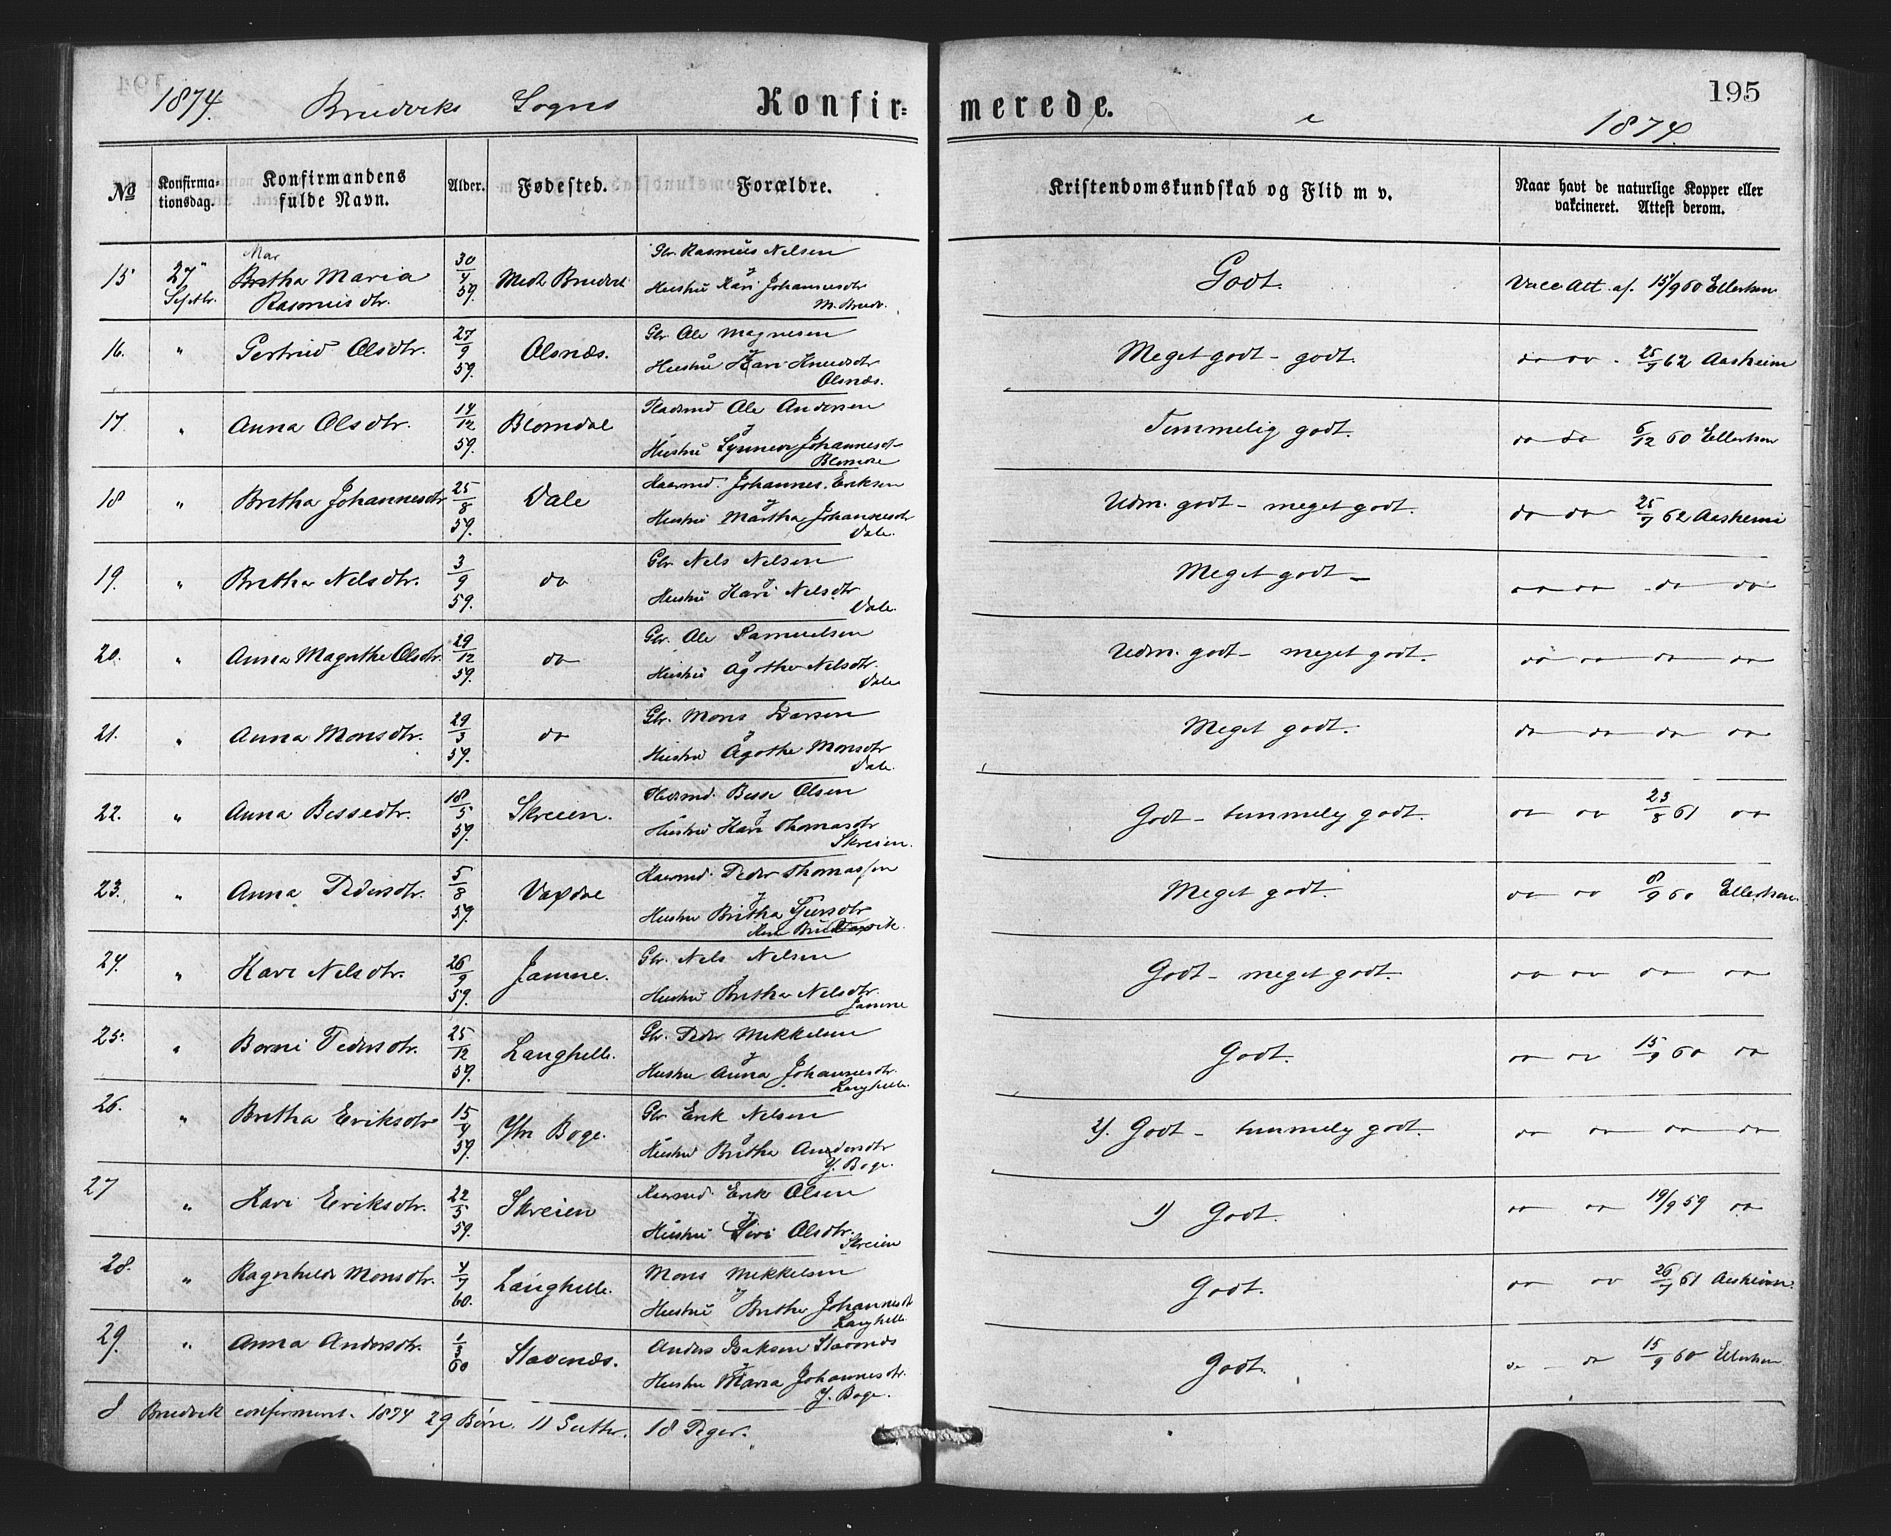 1874. Bruvviks Sogns Konfir-merede. 1874. 195
No Konfirma-tionsdag. Konfirmandens fulde Navn. Alder. Fødested. Forældre. Kristendomskundskab og Flid m v. Naar havt de naturlige Kopper eller vakcineret. Attest derom.
15 27 Septbr. Mar Britha Maria Rasmusdtr. 30/4 59. Gbr. Rasmus Nelsen
Hustru Kari Johannesdtr Godt. Vacc Att. af. 15/9 60 Ellertsen
16. " Gertrud Olsdtr. 27/9 59. Olsnæs. Gbr Ole Magnesen
Hustru Kari Knudsdtr Olsnæs. Meget godt - godt. do do - 25/7 62 Aasheim
17. " Anna Olsdtr. 14/12 59. Blomdal Pladsmd Ole Andersen
Hustru Synneva Johannesdt Temmelig godt. do do 6/12 60 Ellertsen
18 " Britha Johannesdtr 25/8 59. Dale Huusmd. Johannes Eriksen
Hustru Martha Johannesdtr Dale. Udm. godt - meget godt. do do 25/7 62 Aasheim
19. " Britha Nelsdtr. 3/9 59. do Gbr. Nels Nelsen
Hustru Kari Nelsdtr Dale. Meget godt - do do do do
20. " Anna Magrethe Olsdtr. 29/12 59. do Gbr. Ole Samuelsen
Hustru Agothe Nelsdtr. Dale Udm. godt - meget godt. do do do do
21. " Anna Monsdtr. 29/3 59. do Gbr. Mons Larsen
Hustru Agothe Monsdtr Dale. Meget godt. do do do do
22. " Anna Bessedtr. 18/5 59. Skreien. Pladsmd. Besse Olsen
Hustru Kari Thomasdtr Skreien. Godt - temmelig godt. do do 23/8 61 do
23. " Anna Pedersdtr. 5/8 59. Vaxdal Huusmd. Peder Thomassen
Hustru Britha Meget godt. do do 8/9 60 Ellertsen.
24. " Kari Nelsdtr. 26/9 59. Jamne. Gbr. Nels Nelsen
Hustru Britha Nelsdtr. Jamne Godt - meget godt. do do do do
25. " Borni Pedersdtr. 25/12 59. Langhelle. Gbr. Peder Mikkelsen
Hustru Anna Johannesdtr. Langhelle. Godt. do do 15/9 60 do
26. " Britha Eriksdtr 15/4 59. Ytr Boge. Gbr Erik Nelsen
Hustru Britha Andersdtr Y. Boge. 2). Godt - temmelig godt. do do do do
27 " Kari Eriksdtr. 22/5 59. Skreien Huusmd. Erik Olsen
Hustru Siri Olsdtr. Skreien 1) Godt. do do 19/9 59 do
28. " Ragnhilde Monsdtr. 4/7 60. Langhelle. Mons Mikkelsen
Hustru Britha Johannesdt Langhelle. Godt. do do 26/7 61 Aasheim.
29. " Anna Andersdtr. 1/3 60 Stavenæs. Anders Stavenæs
Hustru Maria Johannesdtr. Y. Boge. Godt. do - do 15/9 60 Ellertsen
I Bruvik confirmert. 1874 29 Børn. 11 Gutter. 18 Piger.